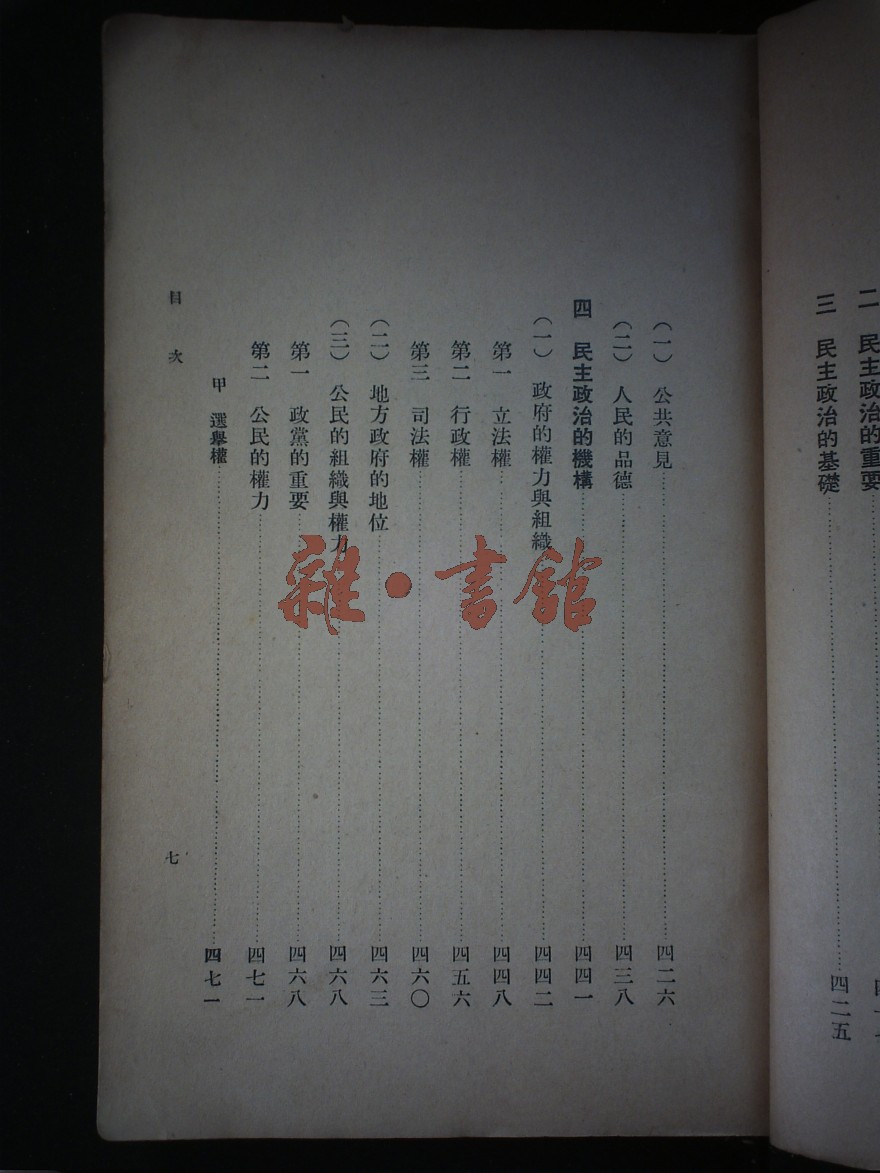 二　民主政治的重要
三　民主政治的基礎……四二五
（一）　公共意見……四二六
（二）　人民的品德……四三八
四　民主政治的機構……四四一
（一）　政府的權力與組織……四四二
第一　立法權……四四八
第二　行政權……四五六
第三　司法權……四六〇
（二）　地方政府的地位……四六三
（三）　公民的組織與權力……四六八
第一　政黨的重要……四六八
第二　公民的權力……四七一
甲　選舉權……四七一
目次　七
雜·書館